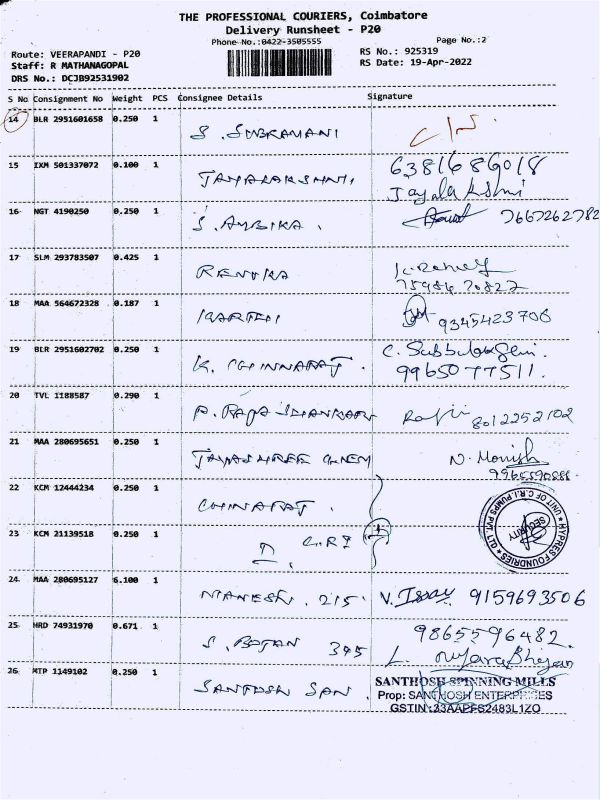 THE PROFESSIONAL COURIERS, Coimbatore
Delivery Runsheet - P20
Phone No.:0422-3505555
Page No.:2
Route: VEERAPANDI - P20
RS No.: 925319
Staff: R MATHANAGOPAL
RS Date: 19-Apr-2022
DRS No.: DCJB92531902
S No Consignment No Weight PCS Consignee Details Signature
14 BLR 2951601658 0.250 1 S. SUBRAMANI
15 IXM 501337072 0.100 1 6381686018
Jayalakshmi
16 NGT 4190250 0.250 1 S. AMBIKA. 7667262782
17 SLM 293783507 0.425 1 RENUKA
18 MAA 564672328 0.187 1 KARTHI 9345423706
19 BLR 2951602702 0.250 1 K. CHINNARAJ.
9965077511.
20 TVL 1188587 0.290 1 P. RAJA SHANKAR 8012252102
21 MAA 280695651 0.250 1 JAYASHREE CHEM N. Monish
22 KCM 12444234 0.250 1 CHINARAJ.
23 KCM 21139518 0.250 1 C.R.I
HYPRES FOUNDRIES
UNIT OF C.R.I PUMPS PVT. LTD
SECURITY
24 MAA 280695127 6.100 1 MANESH. 215. 9159693506
25 HRD 74931970 0.671 1 S. BOJAN 345 9865596482.
26 MTP 1149102 0.250 1 SANTOSH SAN.
SANTHOSH SPINNING MILLS
Prop: SANTHOSH ENTERPRISES
GSTIN :33AAPFS2483L1ZO